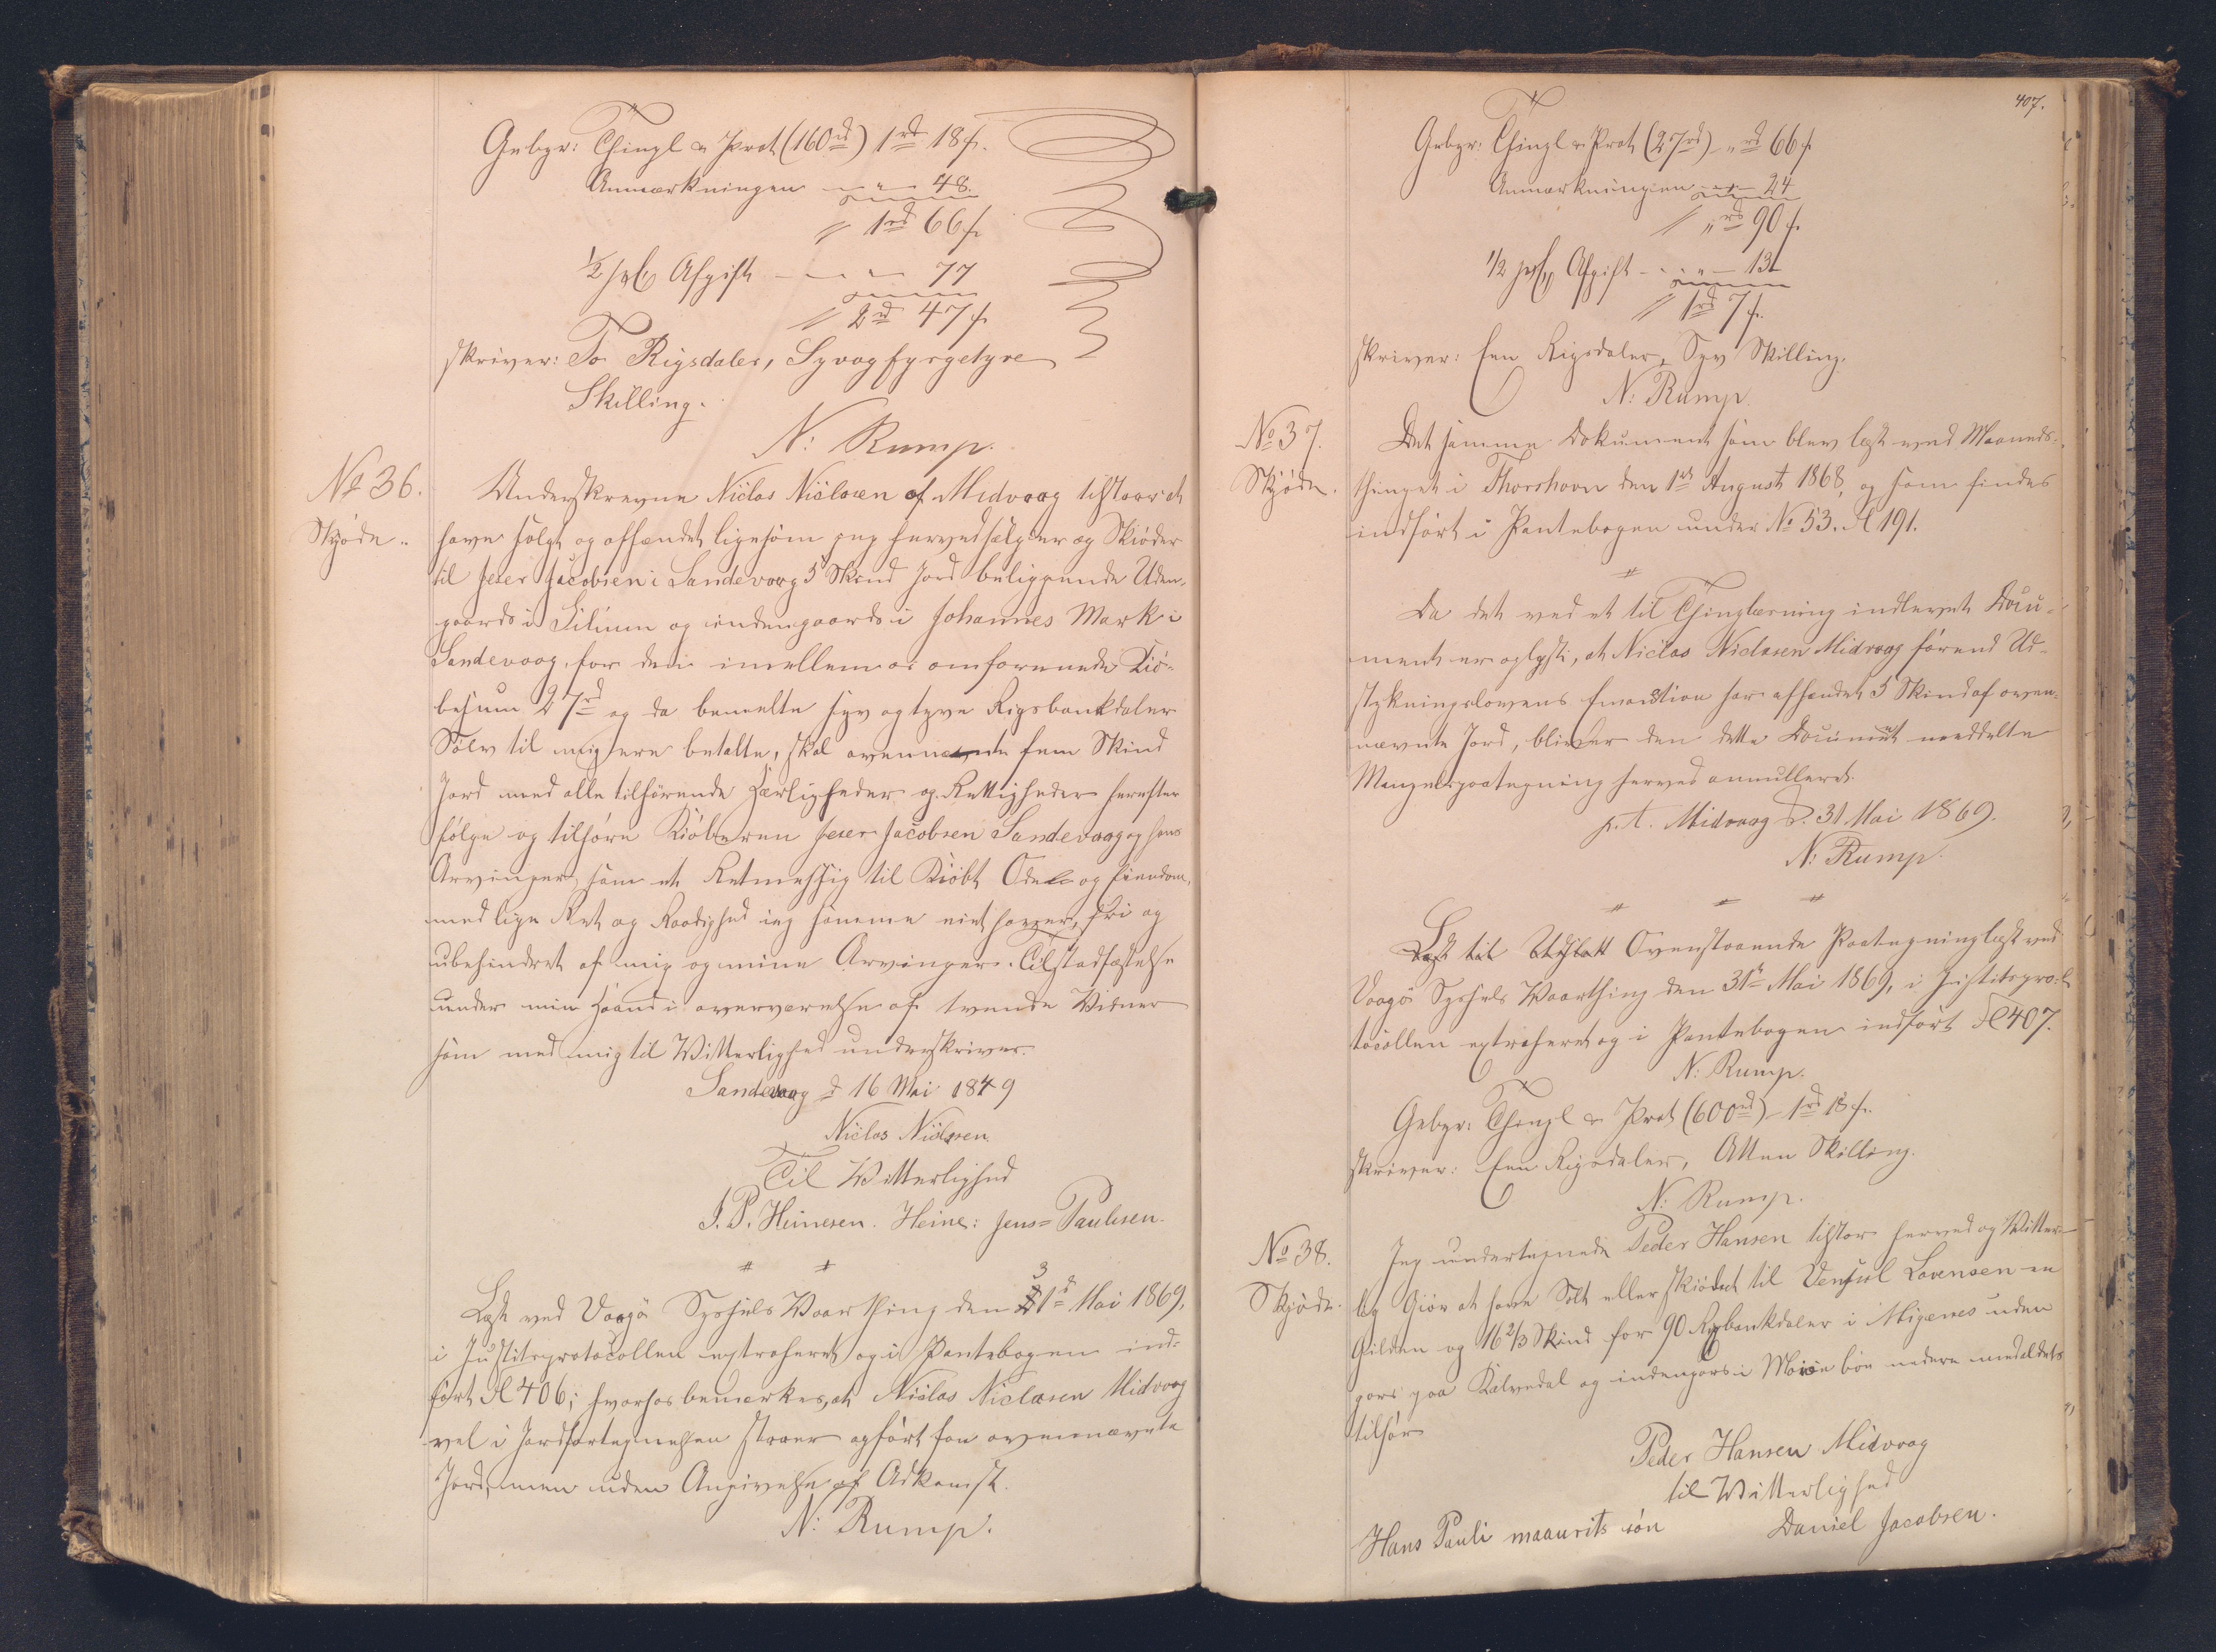 Gebyr: Thingl & Prot (160rd) 1rd 18s.
Anmærkningen — " — 48.
// 1rd 66s.
½ pCt Afgift — — " — 77
// 2rd 47s.
skriver: To Rigsdaler, Syvogfyrgetyve
Skilling.
N: Rump.
No 36.
Skjøde.
Underskrevne Niclas Niclasen af Midvaag tilstaar at
have solgt og afhændet ligesom jeg herved sælger og Skiøder
til Jeser Jacobsen i Sandevaag 5 Skind Jord beliggende Uden-
gaards i Lilium og indengaards i Johannes Mark i
Sandevaag, for den imellem os omforenede Kiø-
besum 27rd og da bemelte syv og tyve Rigsbankdaler
Sølv til mig ere betalte, skal ovennævnte fem Skind
Jord med alle tilhørende Herligheder og Rettigheder herefter
følge og tilhøre Kiøberen Jeser Jacobsen Sandevaag og hans
Arvinger, som et Retmessig til Kiøbt Odel og Eiendom,
med lige Ret og Raadighed ieg samme eiet haver, fri og
ubehindret af mig og mine Arvinger. Til Stadfæstelse
under min Haand i overværelse af tvende Vidner
som med mig til Witterlighed underskriver.
Sandevaag d 16 Mai 1849
Niclas Niclasen.
Til Witterlighed
J. P. Heinesen. Heine: Jens= Paulisen.
Læst ved Vaagø Syssels Vaarthing den 31d Mai 1869,
i Justitsprotocollen extraheret og i Pantebogen ind-
ført Fol 406; hvorhos bemærkes, at Niclas Niclasen Midvaag
vel i Jordfortegnelsen staaer opført for ovennævnte
Jord, men uden Angivelse af Adkomst.
N: Rump.
407.
Gebyr: Thingl & Prot (27rd) — " rd 66s
Anmærkningen — " — 24
// " rd 90s.
1/2 pCt Afgift - - " — 13
// 1rd 7s.
skriver: Een Rigsdaler, Syv Skilling.
N: Rump.
No 37.
Skjøde.
Det samme Dokument som blev læst ved Maaneds-
thinget i Thorshavn den 1ste August 1868, og som findes
indført i Pantebogen under No 53. Fol 191.
Da det ved et til Thinglæsning indleveret Docu-
ment er oplyst, at Niclas Niclasen Midvaag førend Ud-
stykningslovens Emanation har afhændet 5 Skind af oven-
nævnte Jord, bliver den dette Document meddelte
Mangelspaategning herved annulleret.
p.t. Midvaag d. 31 Mai 1869.
N: Rump.
Læst til Udslætt Ovenstaaende Paategning læst ved
Vaagø Syssels Vaarthing den 31te Mai 1869, i Justitspro-
tocollen extraheret og i Pantebogen indført Fol 407.
N: Rump.
Gebyr: Thingl & Prot (600rd) 1rd 18s.
skriver: Een Rigsdaler, Atten Skilling.
N: Rump.
No 38.
Skjøde.
Jeg undertegnede Peder Hansen tilstar herved og Witter-
lig Giør at have Solt eller skiødet til Venjal Lavensen en
Gilden og 16 2/3 Skind for 90 Rgbankdaler i Migenes uden
gars paa Kalvedal og indengars i Moien bøn nedere med aldets
tilhør
Peder Hansen Midvaag
til Witterlighed
Hans Pauli maaurits søn Daniel Jacobsen.